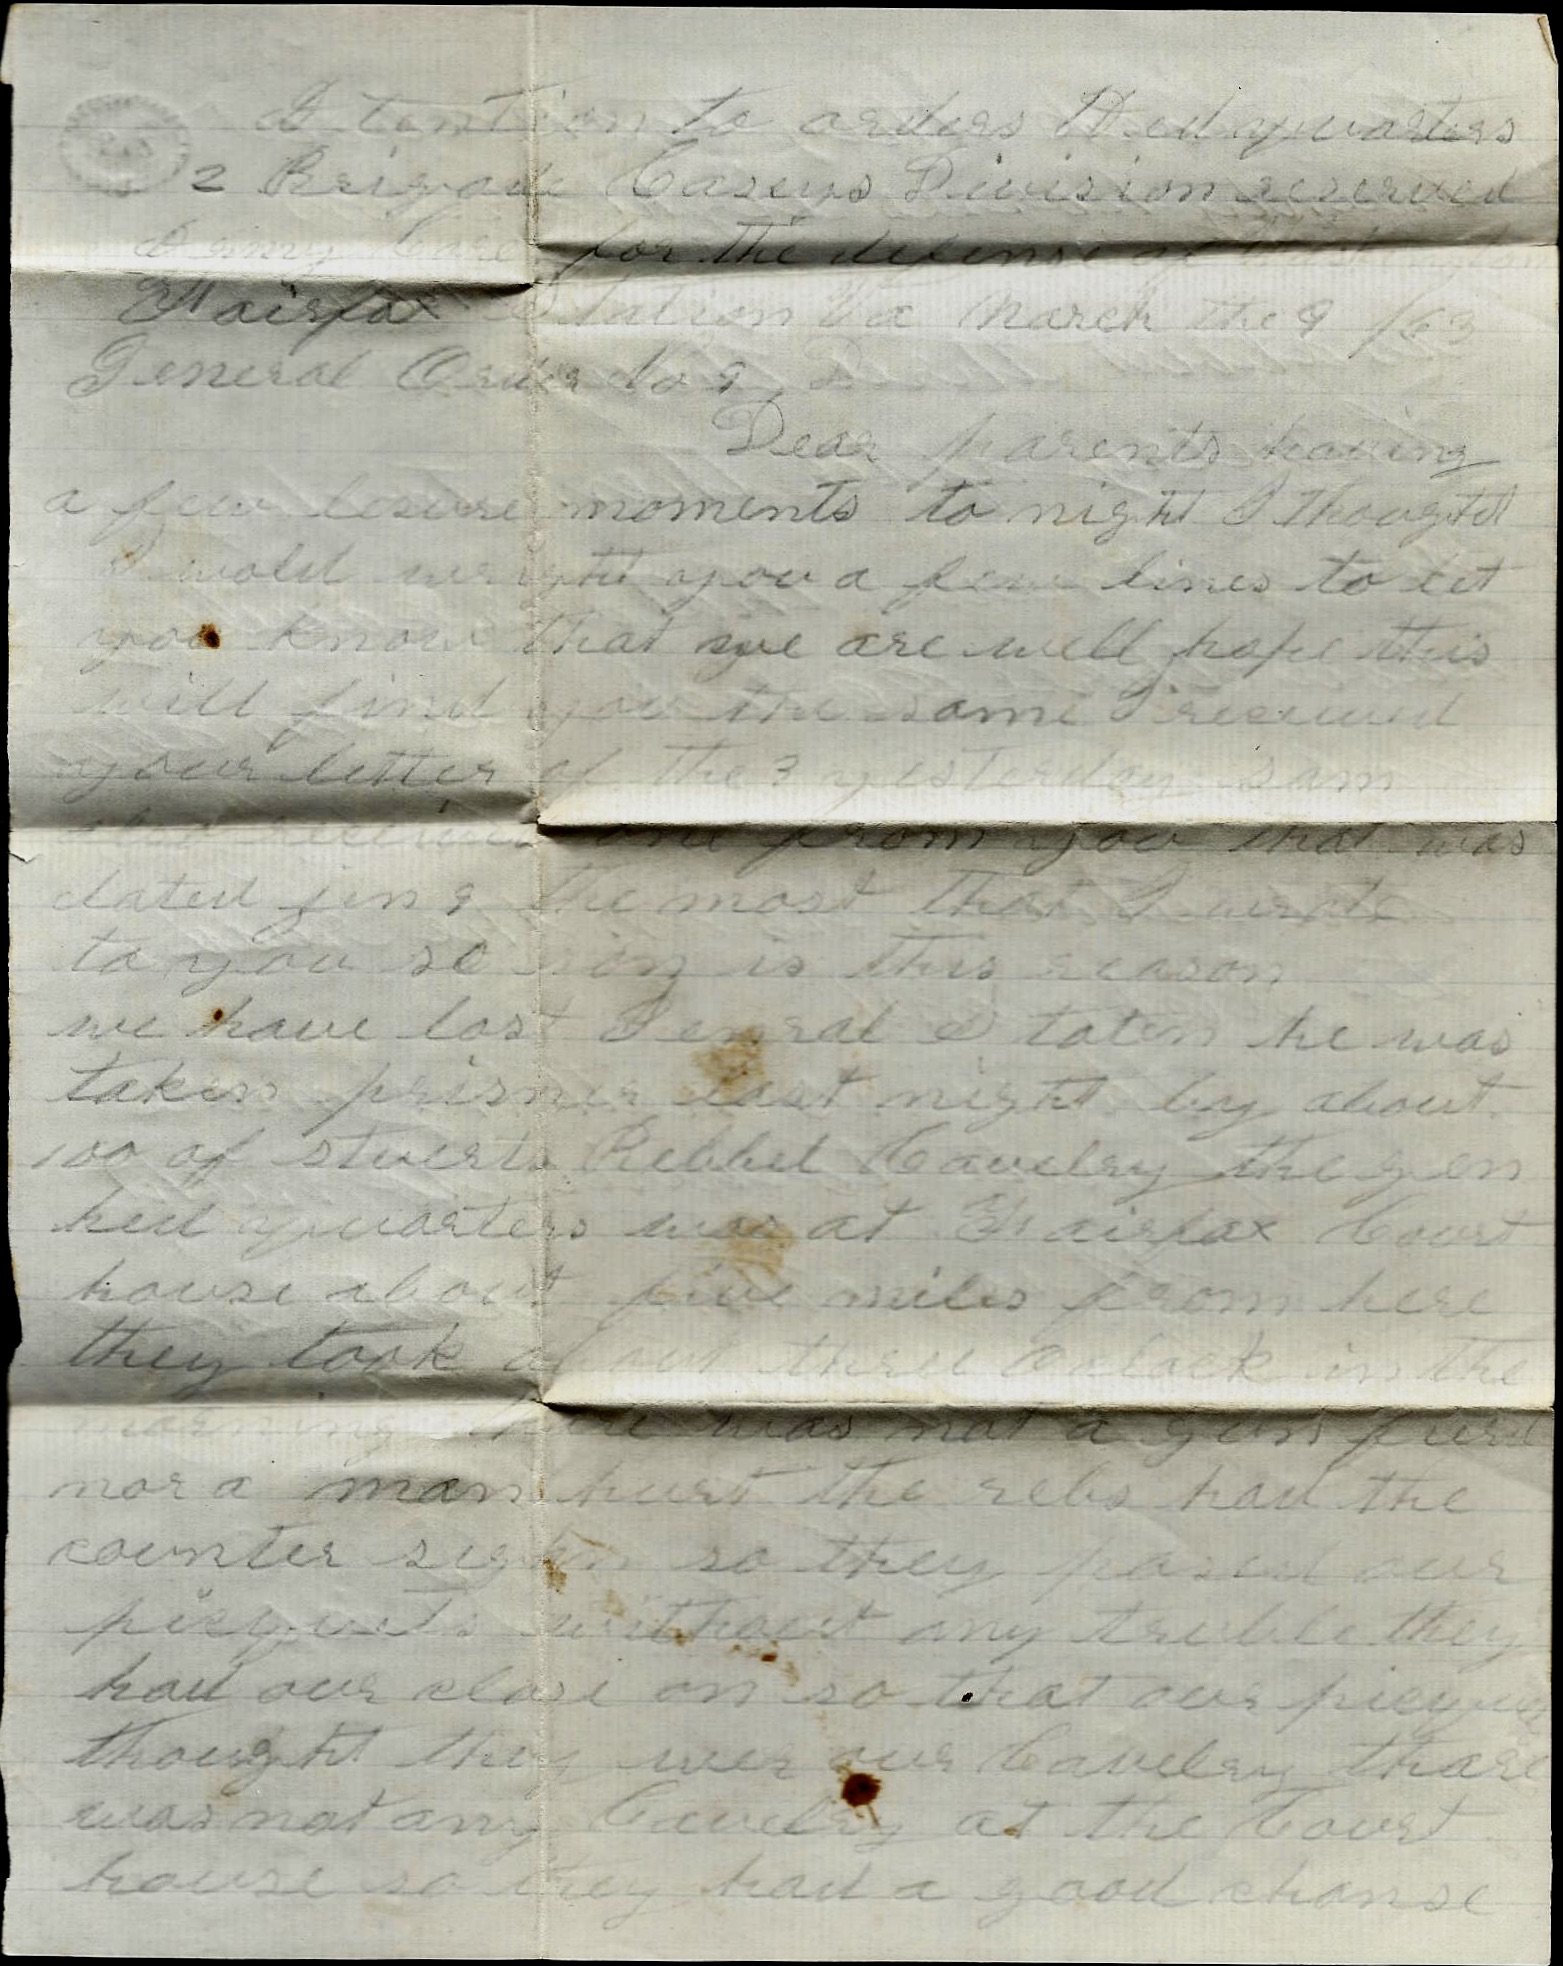 Atention to orders Hed quarters
2 Brigade Caseys Division reserved
Army Core for the defense of Washington
Fairfax Station Va March the 9 /63
General Order No 9
Dear parents having
a few lesure moments to night I thought
I wold wright you a few lines to let
you know that we are well hope this
will find you the same I received
your letter of the 3 yesterday sam
also received one from you that was
dated jen 9 the most that I wrote
to you so is this reason
we have lost Genral Stoten he was
taken prisner last night by about
100 of stuerts Rebbel Cavelry the gen
hed quarters was at Fairfax Court
house about five miles from here
they took about three Oclock in the
morning there was not a gun fierd
nor a man hurt the rebs had the
counter sighn so they pased our
picquets without any truble they
had our close on so that our picquets
thought they wer our Cavelry thare
was not any Cavelry at the Court
house so they had a good chanse